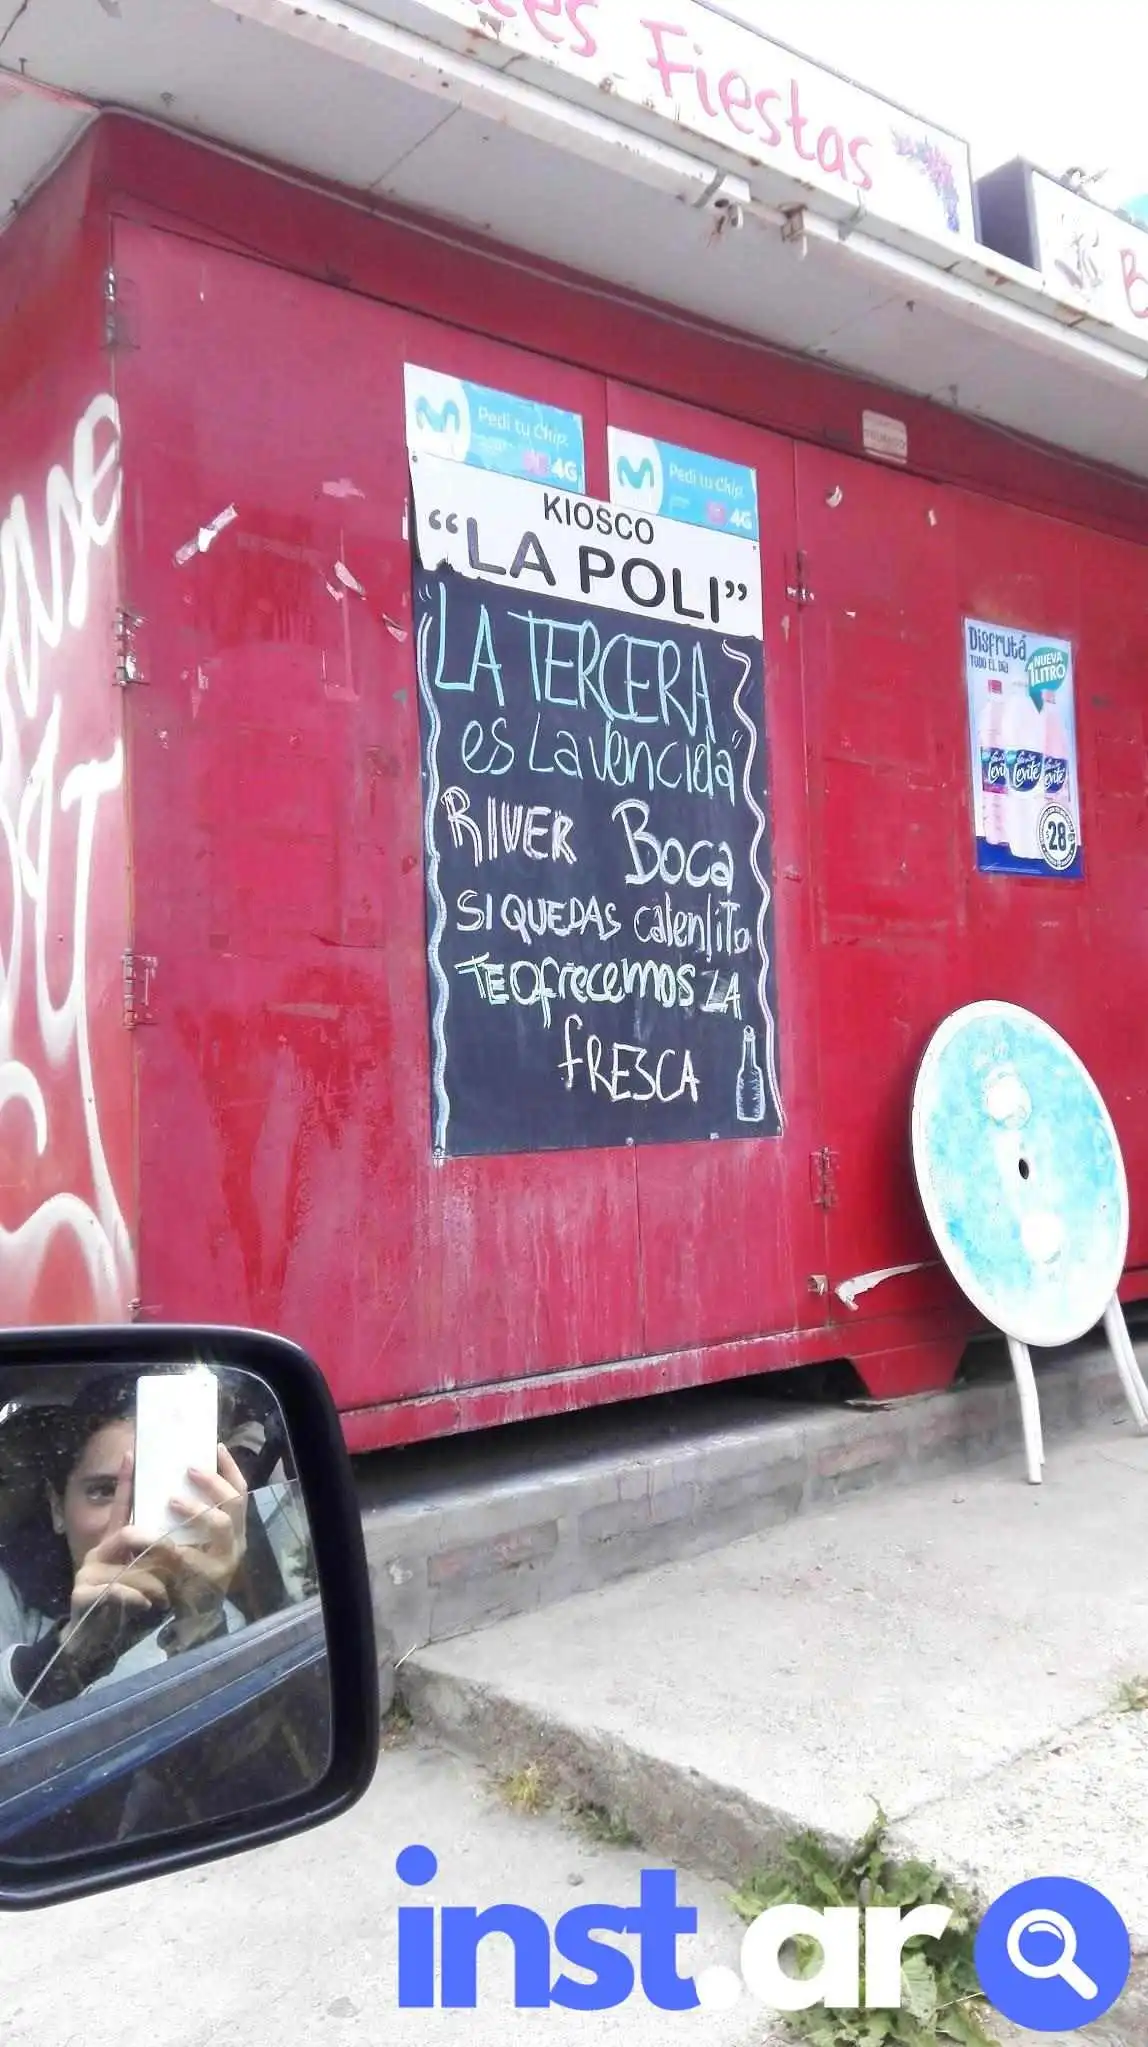 Fiestas
B
Pedí tu Chip.
4G
Pedí tu Chip.
4G
KIOSCO
"LA POLI"
"LA TERCERA
es La vencida"
RIVER Boca
SI QUEDAS calentito
TE Ofrecemos LA
fRESCA
Disfrutá
TODO EL DÍA
NUEVA
1 LITRO
Levité
Levité
$28
inst.ar